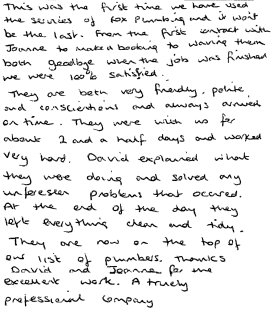 This was the first time we have used
the services of Fox Plumbing and it won't
be the last. From the first contact with
Joanne to make a booking to waving them
both goodbye when the job was finished
we were 100% satisfied.
They are both very friendly, polite,
and conscientious and always arrived
on time. They were with us for
about 2 and a half days and worked
very hard. David explained what
they were doing and solved any
unforeseen problems that occured.
At the end of the day they
left everything clean and tidy.
They are now on the top of
our list of plumbers. Thanks
David and Joanne for the
excellent work. A truely
professional company